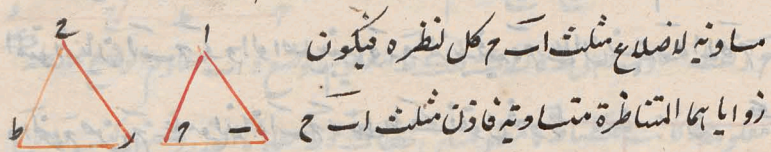 مساوية لاضلاع مثلث ا ب ح كل لنظره فيكون
زواياهما المتناظرة متساوية فاذن مثلث ا ب ح
ا
ب
ح
ح
ط